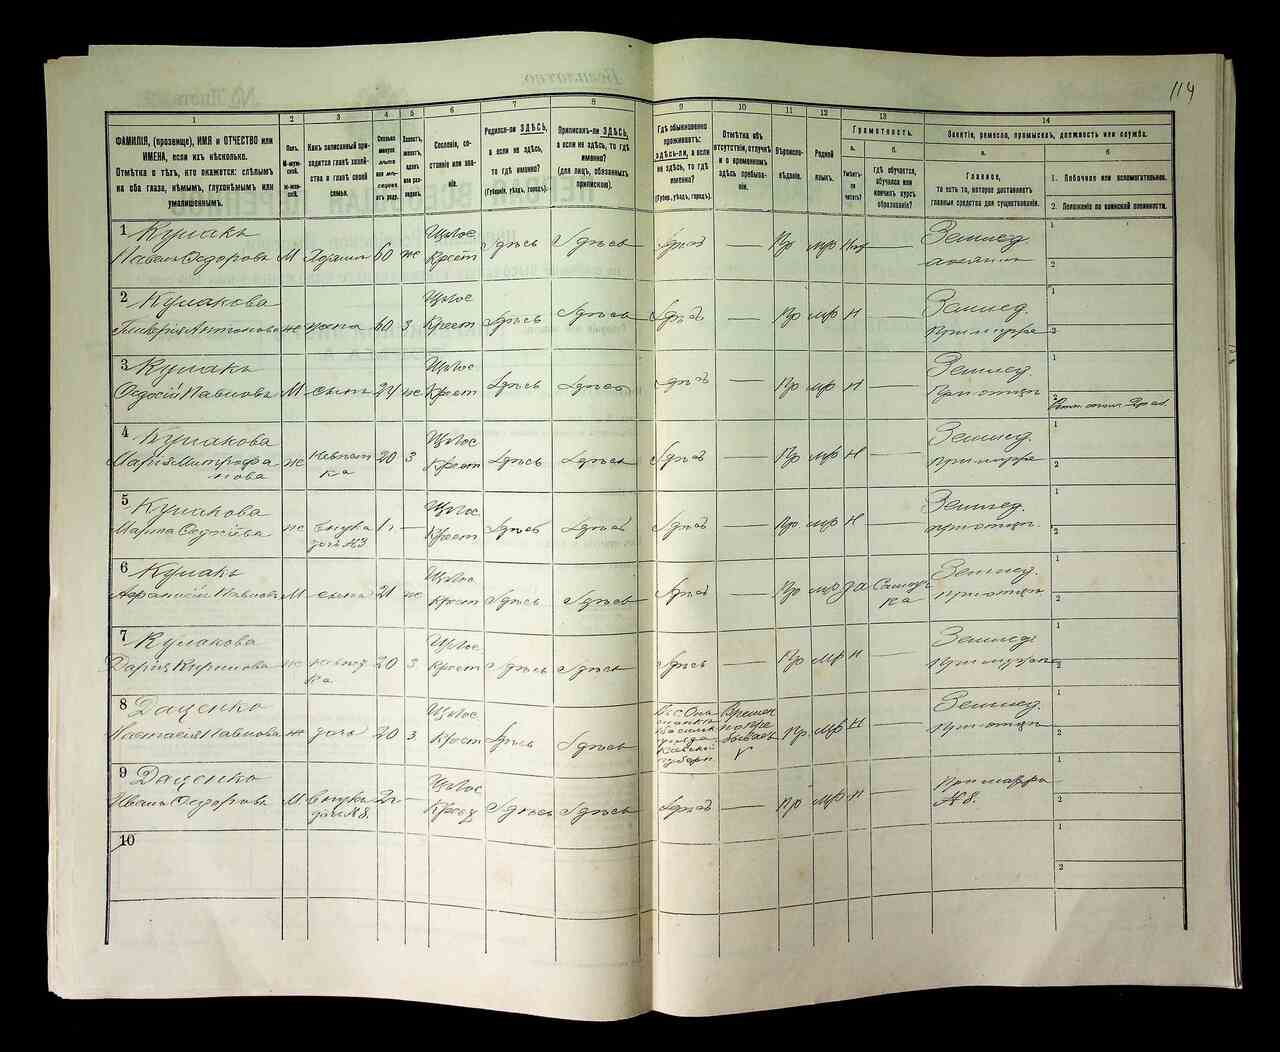 114
1 2 3 4 5 6 7 8 9 10 11 12 13 14
ФАМИЛІЯ, (прозвище), ИМЯ и ОТЧЕСТВО или ИМЕНА, если ихъ нѣсколько.
Отмѣтка о тѣхъ, кто окажется: слѣпымъ на оба глаза, нѣмымъ, глухонѣмымъ или умалишеннымъ.
Полъ.
М-мужской.
ж-женскій.
Какъ записанный приходится главѣ хозяйства и главѣ своей семьи.
Сколько минуло лѣтъ или мѣсяцевъ отъ роду.
Холостъ, женатъ, вдовъ или разведенъ.
Сословіе, состояніе или званіе.
Родился-ли ЗДѢСЬ, а если не здѣсь, то гдѣ именно?
(Губернія, уѣздъ, городъ).
Приписанъ-ли ЗДѢСЬ, а если не здѣсь, то гдѣ именно?
(для лицъ, обязанныхъ припискою).
Гдѣ обыкновенно проживаетъ: здѣсь-ли, а если не здѣсь, то гдѣ именно?
(Губер., уѣздъ, городъ).
Отмѣтка объ отсутствіи, отлучкѣ и о временномъ здѣсь пребываніи.
Вѣроисповѣданіе.
Родной языкъ.
Грамотность.
а.
Умѣетъ-ли читать?
б.
гдѣ обучается, обучался или кончилъ курсъ образованія?
Занятіе, ремесло, промыселъ, должность или служба.
а.
Главное,
то есть то, которое доставляетъ главныя средства для существованія.
б
1. Побочное или вспомогательное.
2. Положеніе по воинской повинности.
1 Кулакъ Щ/гос Землед.
Павелъ Ѳедоровъ М Хозяинъ 60 ж Крест Здѣсь Здѣсь Здѣсь — Пр мр — 1 2
2 Кулакова Щ/гос Землед.
Антонова ж жена 60 З Крест Здѣсь Здѣсь Здѣсь — Пр мр н — при мужѣ 1 2
3 Кулакъ Щ/гос Землед.
Ѳедосій Павловъ М сынъ 24 ж Крест Здѣсь Здѣсь Здѣсь — Пр мр н — при отцѣ 1 2
4 Кулакова Щ/гос Землед.
Марія Митрофанова ж невѣстка 20 З Крест Здѣсь Здѣсь Здѣсь — Пр мр н — при мужѣ 1 2
5 Кулакова Щ/гос Землед.
Марѳа ж внука 1 г — Крест Здѣсь Здѣсь Здѣсь — Пр мр н — при отцѣ 1 2
дочь №3
6 Кулакъ Щ/гос Землед.
Аѳанасій Павловъ М сынъ 21 ж Крест Здѣсь Здѣсь Здѣсь — Пр мр да при отцѣ 1 2
7 Кулакова Щ/гос Землед
Дарія Кирилова ж невѣстка 20 З Крест Здѣсь Здѣсь Здѣсь — Пр мр н — 1 2
8 Даценко Щ/гос Землед.
Настасія Павлова ж дочь 20 З Крест Здѣсь Здѣсь Кіевской губерн Времен но пребываетъ Пр мр н — при отцѣ 1 2
9 Даценко Щ/гос при матери
Иванъ Ѳедоровъ М внукъ 2 г — Крест Здѣсь Здѣсь Здѣсь — Пр мр н — №8. 1 2
дочь №8.
10 1 2